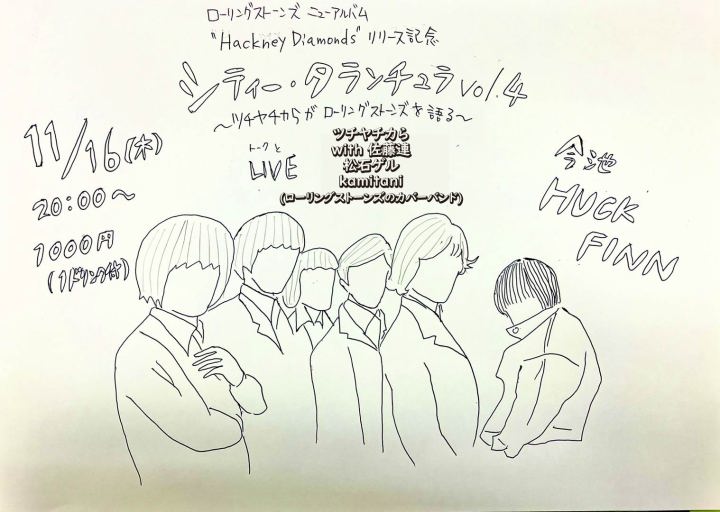 ローリングストーンズ ニューアルバム
"Hackney Diamonds" リリース記念
シティー・タランチュラ vol.4
～ツチヤチカらが ローリングストーンズを語る～
11/16(木)
20:00～
1000円
(1ドリンク付)
トークと
LIVE
ツチヤチカら
with 佐藤連
松石ゲル
kamitani
(ローリングストーンズのカバーバンド)
今池
HUCK
FINN